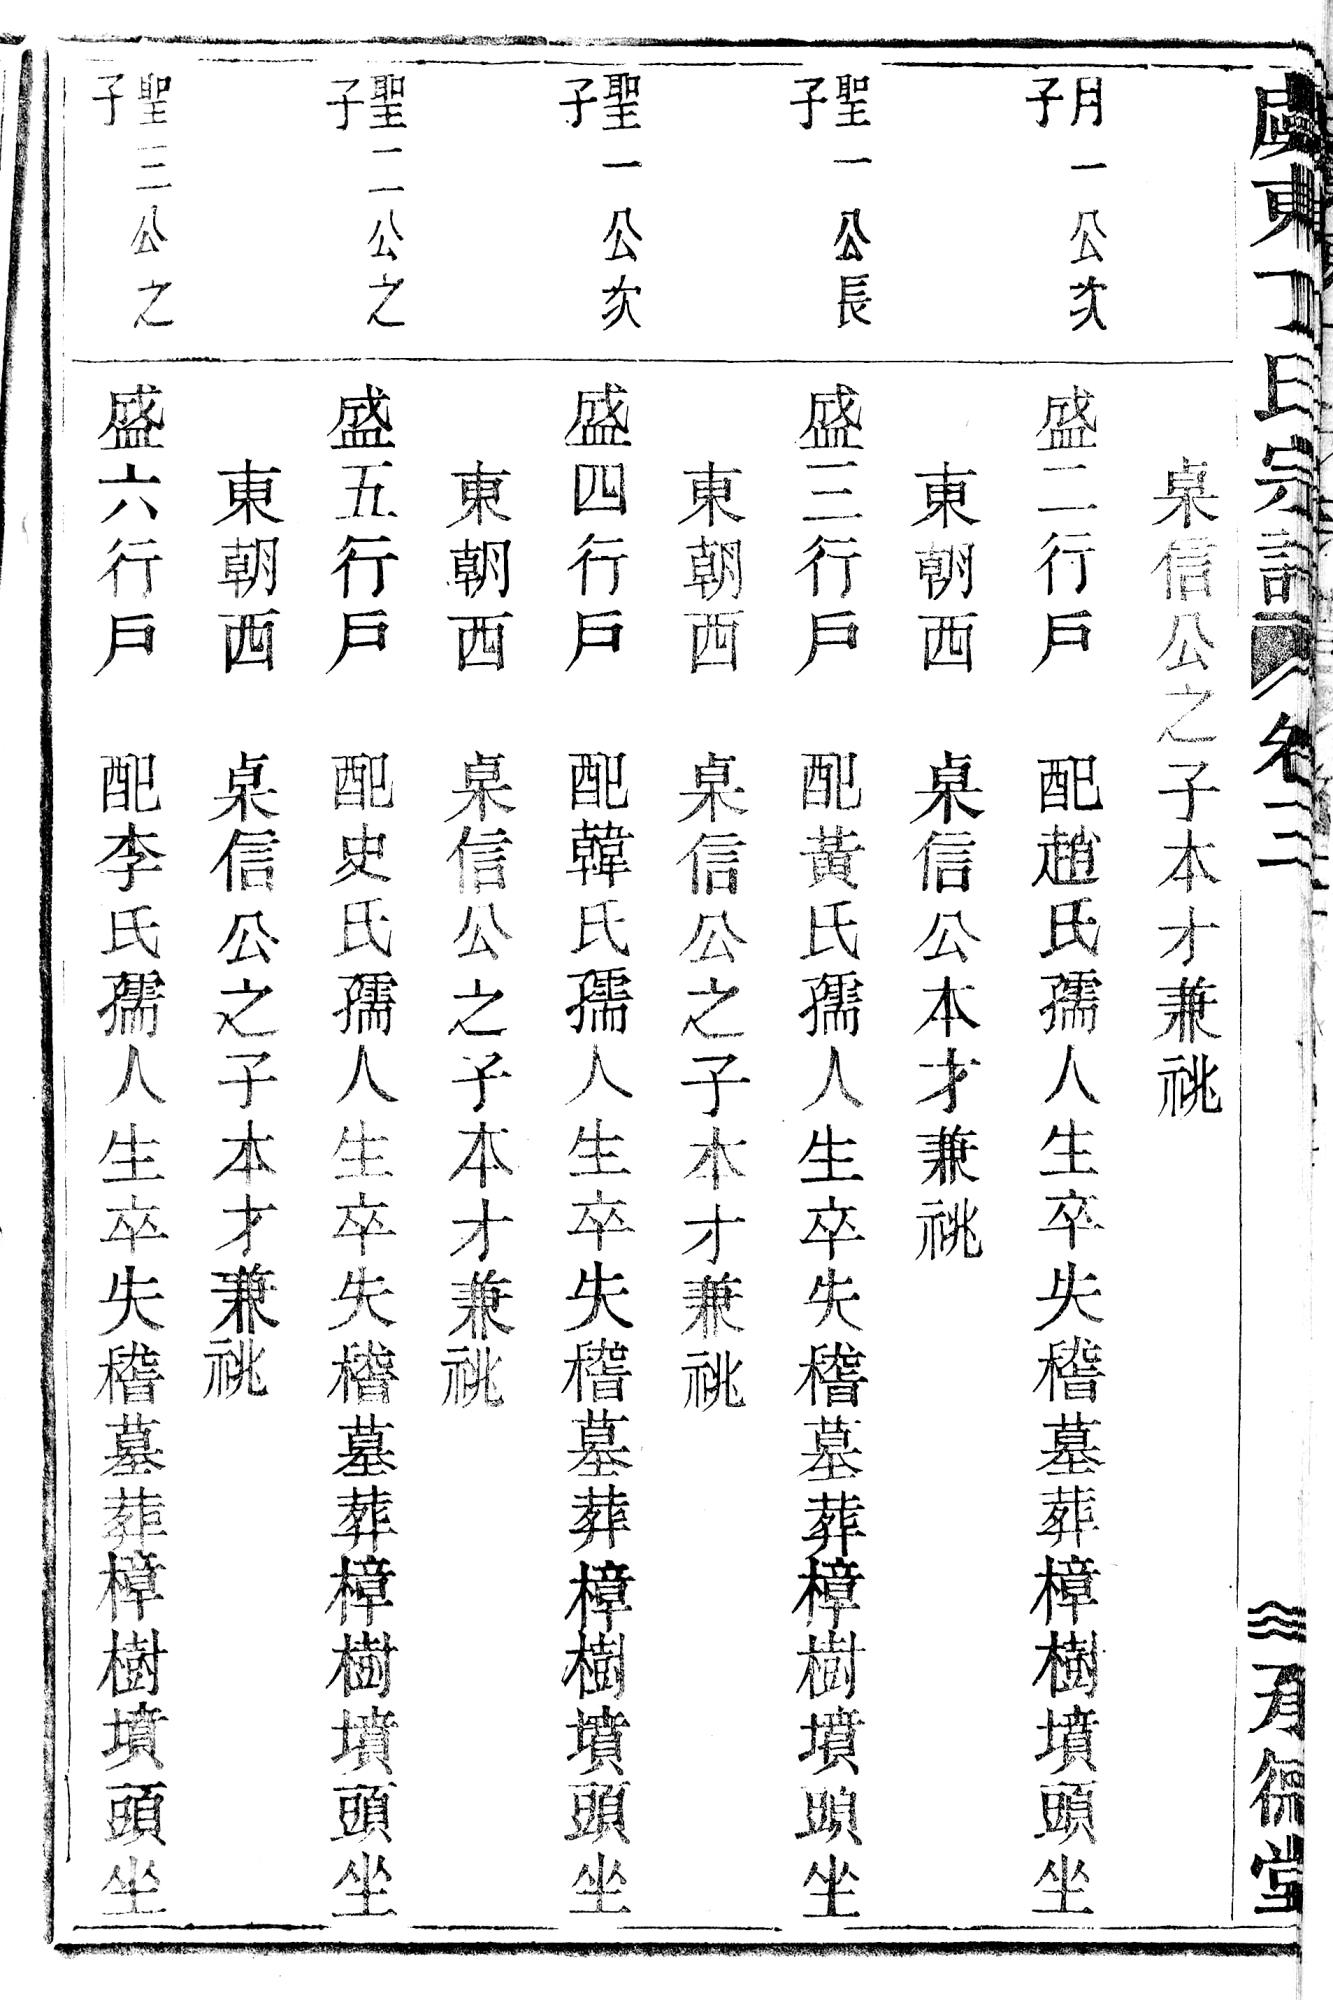 虞東丁氏宗譜
德堂
桌信公之子本才兼祧
月一公次
子
盛二行戶 配趙氏孺人生卒失稽墓葬樟樹墳頭坐
東朝西 桌信公本才兼祧
聖一公長
子
盛三行戶 配黃氏孺人生卒失稽墓葬樟樹墳頭坐
東朝西 桌信公之子本才兼祧
聖一公次
子
盛四行戶 配韓氏孺人生卒失稽墓葬樟樹墳頭坐
東朝西 桌信公之子本才兼祧
聖二公之
子
盛五行戶 配史氏孺人生卒失稽墓葬樟樹墳頭坐
東朝西 桌信公之子本才兼祧
聖三公之
子
盛六行戶 配李氏孺人生卒失稽墓葬樟樹墳頭坐